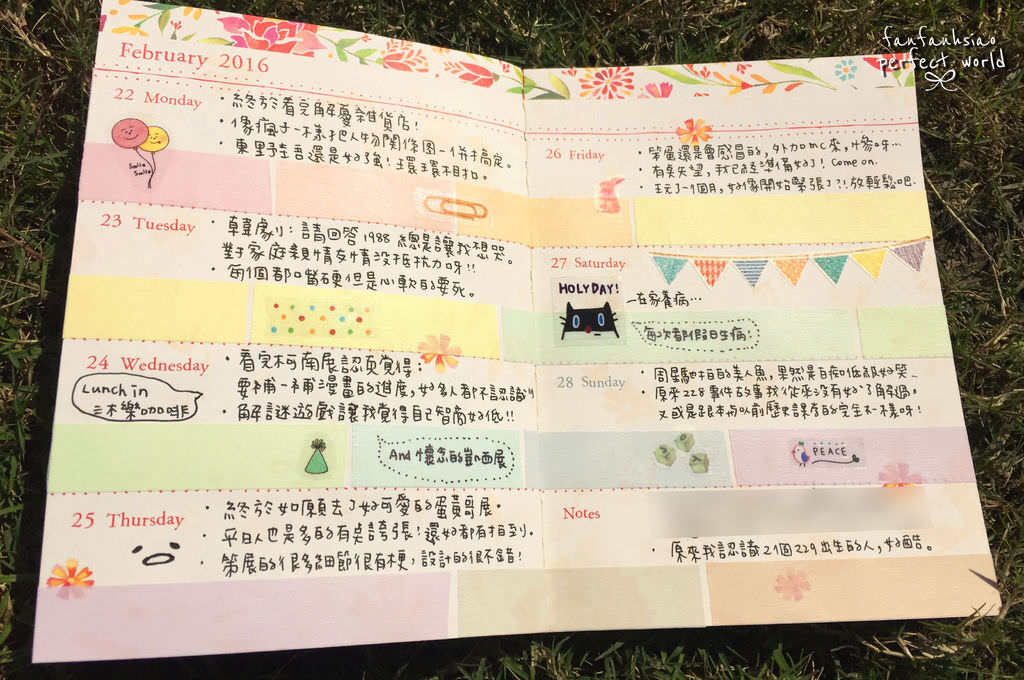 fanfanhsiao
perfect world
February 2016
22 Monday
・終於看完解憂雜貨店!
・像瘋子一樣把人物關係圖一併搞定。
・東野圭吾還是好強!環環相扣。
Smile Smile
23 Tuesday
・韓劇:請回答1988 總是讓我想哭。
對家庭親情友情沒抵抗力呀!!
・每個都嘴硬但是心軟的要死。
24 Wednesday
Lunch in
咖啡
・看完柯南展認真覺得:
要補一補漫畫的進度,好多人都不認識!!
・解謎遊戲讓我覺得自己智商好低!!
And 懷念的凱西展
25 Thursday
・終於如願去了好可愛的蛋黃哥展。
・平日人也是多的有点誇張!還好都有拍到。
・策展的很多細節很有梗,設計的很不錯!
26 Friday
・笨蛋還是會感冒的,外加mc來,慘呀…
・有点失望,我已經準備好了! Come on.
・玩了一個月,好像開始緊張了?!放輕鬆吧.
27 Saturday
HOLYDAY!
一在家養病…
每次都假日生病!
28 Sunday
・周星馳拍的美人魚,果然是白痴低級好笑…
・原來228事件故事我從來沒有好好了解過。
又或是跟本与以前歷史課本的完全不一樣呀!
PEACE
Notes
・原來我認識2個229出生的人,好酷。